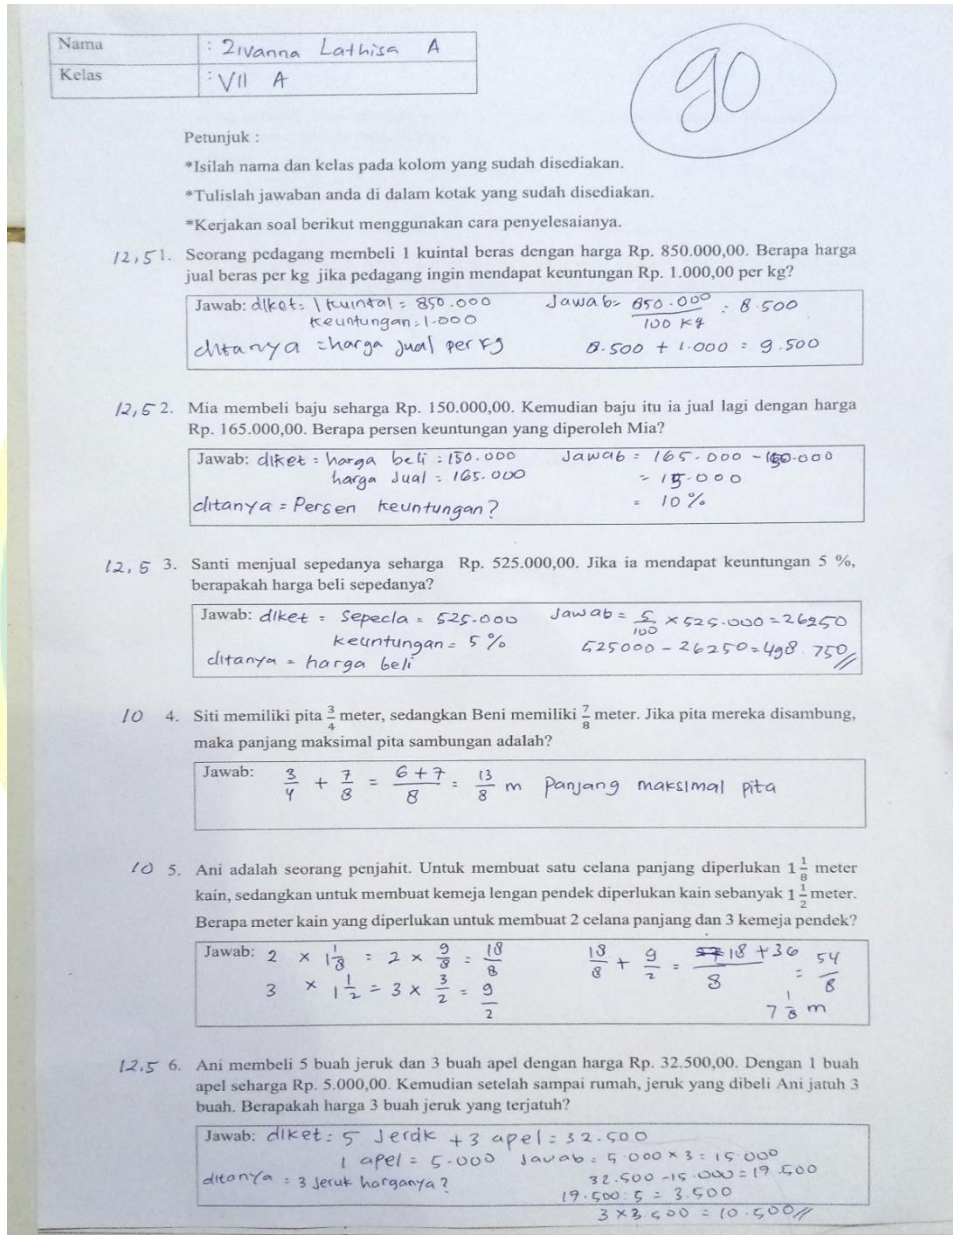 Nama : Zivanna Lathisa A
90
Kelas : VII A
Petunjuk :
*Isilah nama dan kelas pada kolom yang sudah disediakan.
*Tulislah jawaban anda di dalam kotak yang sudah disediakan.
*Kerjakan soal berikut menggunakan cara penyelesaianya.
12,5 1. Seorang pedagang membeli 1 kuintal beras dengan harga Rp. 850.000,00. Berapa harga
jual beras per kg jika pedagang ingin mendapat keuntungan Rp. 1.000,00 per kg?
Jawab: diket: 1 kuintal = 850.000 Jawab = 850.000/100 kg = 8.500
keuntungan = 1.000
ditanya = harga jual per kg 8.500 + 1.000 = 9.500
12,5 2. Mia membeli baju seharga Rp. 150.000,00. Kemudian baju itu ia jual lagi dengan harga
Rp. 165.000,00. Berapa persen keuntungan yang diperoleh Mia?
Jawab: diket = harga beli : 150.000 Jawab = 165.000 - 150.000
harga Jual = 165.000 = 15.000
ditanya = Persen keuntungan? = 10 %
12,5 3. Santi menjual sepedanya seharga Rp. 525.000,00. Jika ia mendapat keuntungan 5 %,
berapakah harga beli sepedanya?
Jawab: diket = Sepeda = 525.000 Jawab = 5/100 × 525.000 = 26250
keuntungan = 5 % 525000 - 26250 = 498.750//
ditanya = harga beli
10 4. Siti memiliki pita 3/4 meter, sedangkan Beni memiliki 7/8 meter. Jika pita mereka disambung,
maka panjang maksimal pita sambungan adalah?
Jawab: 3/4 + 7/8 = 6+7/8 = 13/8 m Panjang maksimal pita
10 5. Ani adalah seorang penjahit. Untuk membuat satu celana panjang diperlukan 1 1/8 meter
kain, sedangkan untuk membuat kemeja lengan pendek diperlukan kain sebanyak 1 1/2 meter.
Berapa meter kain yang diperlukan untuk membuat 2 celana panjang dan 3 kemeja pendek?
Jawab: 2 × 1 1/8 = 2 × 9/8 = 18/8 18/8 + 9/2 = 18+36/8 = 54/8
3 × 1 1/2 = 3 × 3/2 = 9/2 7 1/8 m
12.5 6. Ani membeli 5 buah jeruk dan 3 buah apel dengan harga Rp. 32.500,00. Dengan 1 buah
apel seharga Rp. 5.000,00. Kemudian setelah sampai rumah, jeruk yang dibeli Ani jatuh 3
buah. Berapakah harga 3 buah jeruk yang terjatuh?
Jawab: diket: 5 Jeruk + 3 apel = 32.500
1 apel = 5.000 Jawab = 5.000 × 3 = 15.000
ditanya = 3 Jeruk harganya? 32.500 - 15.000 = 19.500
19.500 : 5 = 3.500
3 × 3.500 = 10.500//